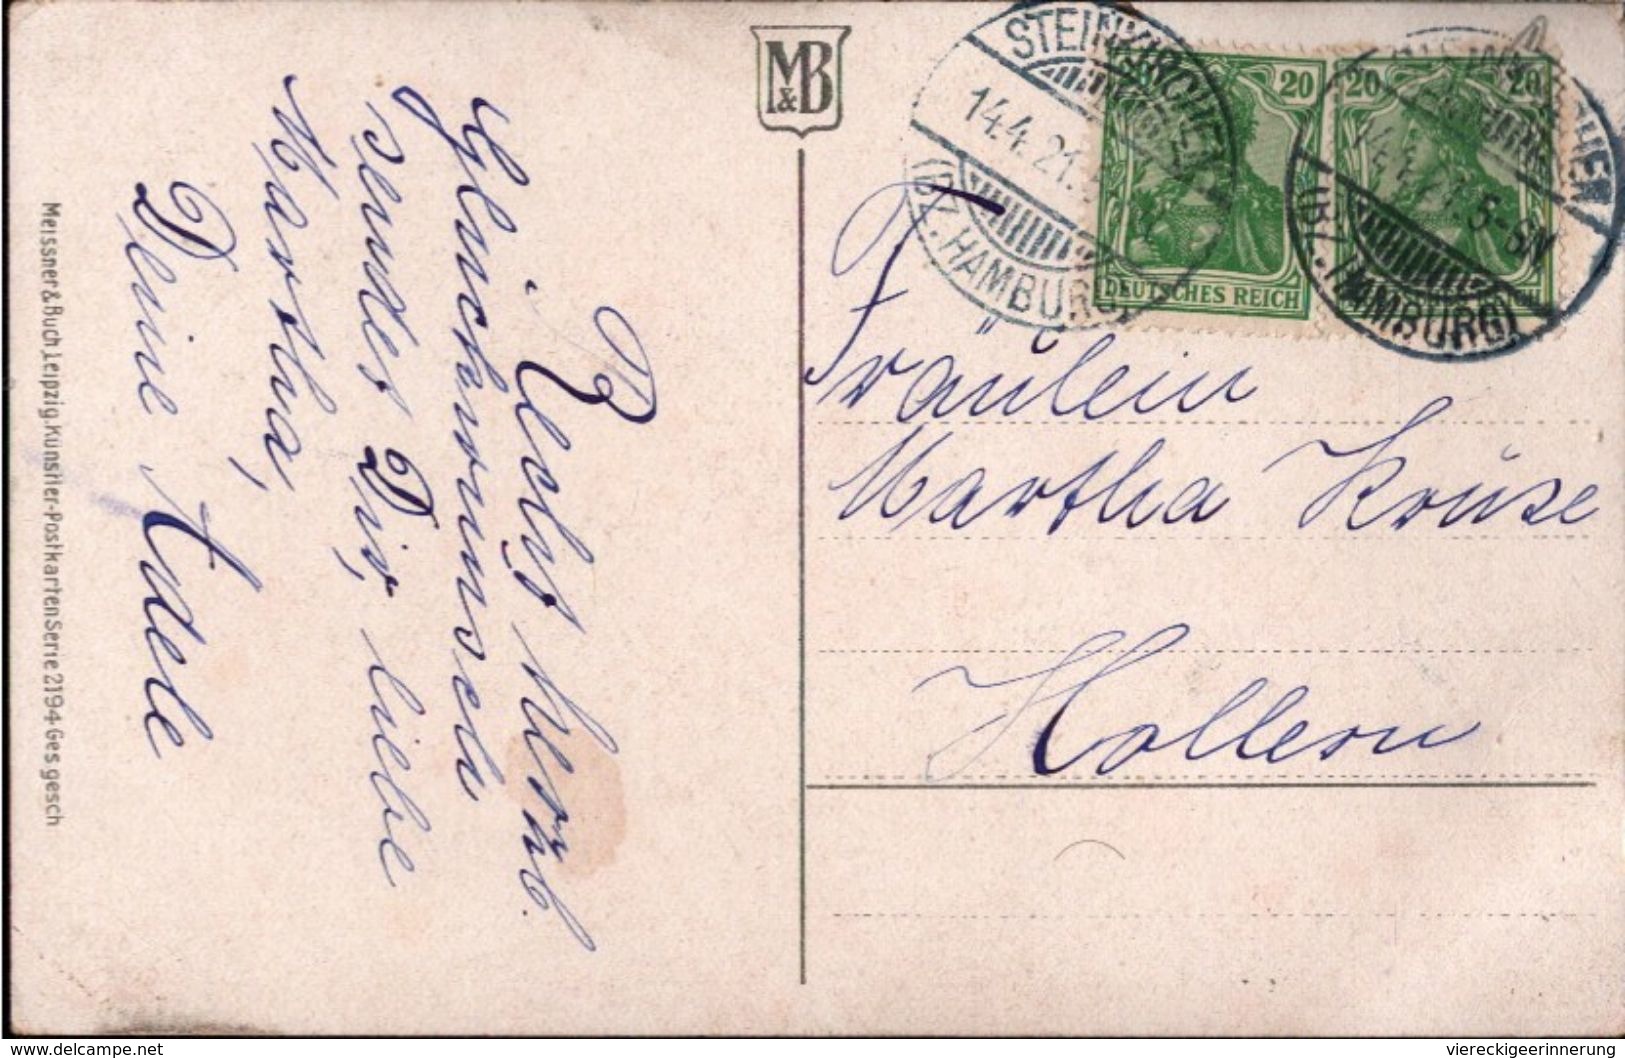 M&B
B.
Recht herzl.
Glückwunsch
sendet Dir, liebe
Martha,
Deine Adele
Meissner & Buch, Leipzig, Künstler-Postkarten Serie 2194 Ges. gesch
STEINKIRCHEN
14.4.21.
(BZ. HAMBURG)
20
DEUTSCHES REICH
20 20
REICH
5-6N
(BZ. HAMBURG)
Fräulein
Martha Kruse
Hollern
viereckigeerinnerung
www.delcampe.net